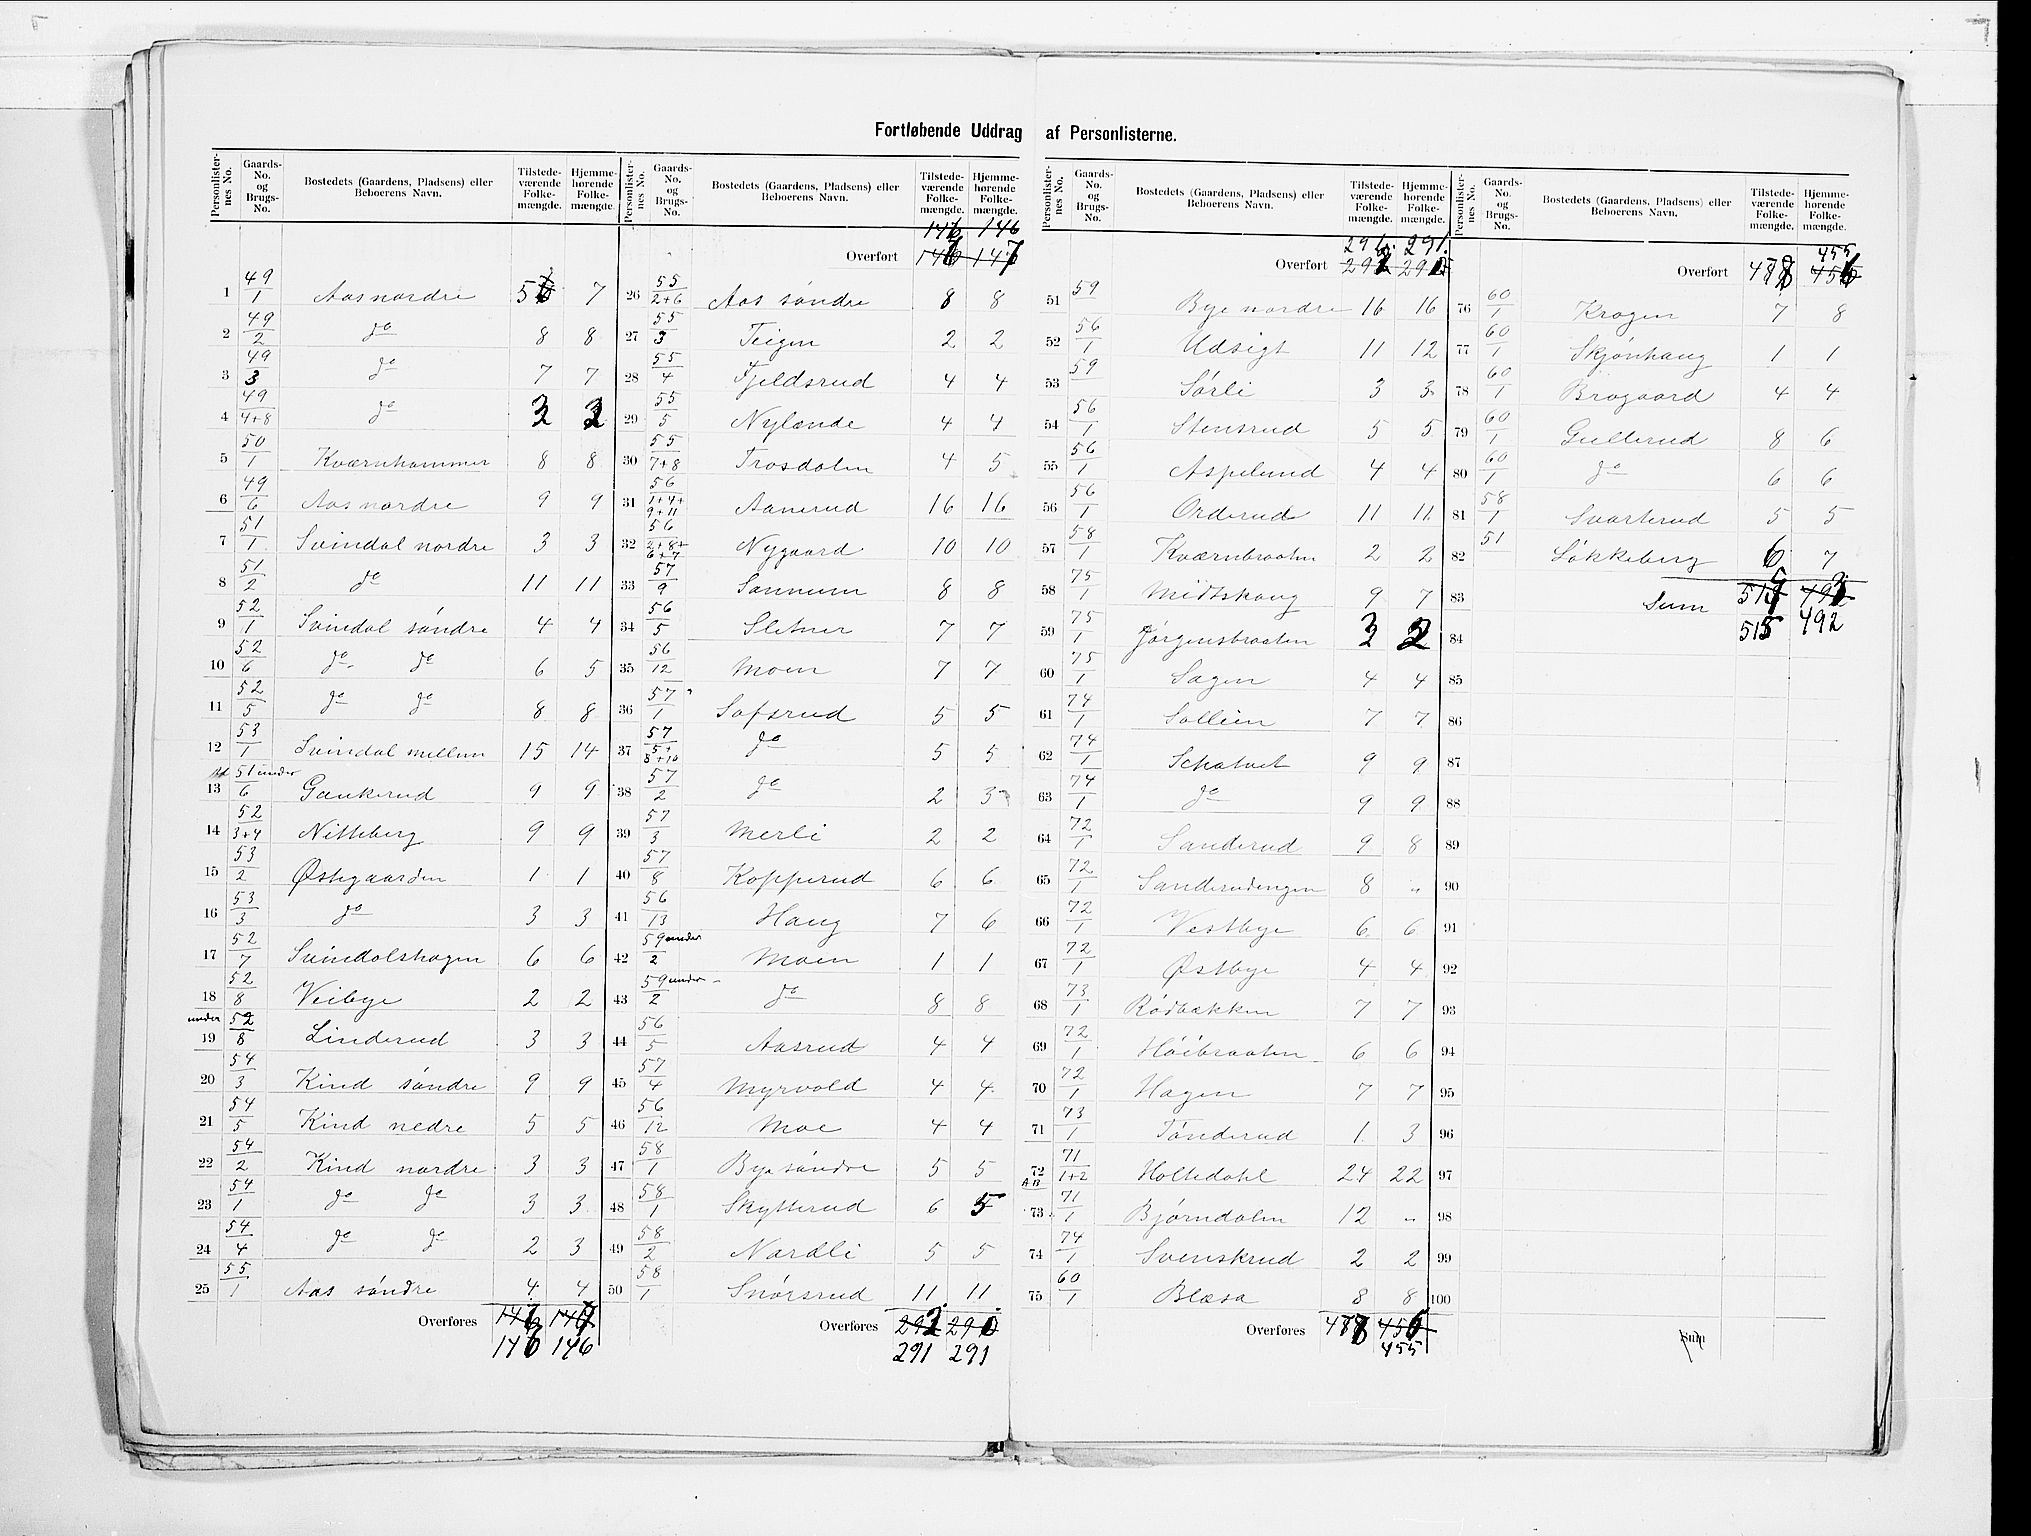 Fortløbende Uddrag af Personlisterne.
Personlister-nes No. | Gaards-No. og Brugs-No. | Bostedets (Gaardens, Pladsens) eller Beboerens Navn. | Tilstede-værende Folke-mængde. | Hjemme-hørende Folke-mængde.
1 49/1 Aas nordre 5 7
2 49/2 do 8 8
3 49/3 do 7 7
4 49/4+8 do 3
5 50/1 Kværnhammer 8 8
6 49/6 Aas nordre 9 9
7 51/1 Svindal nordre 3 3
8 51/2 do 11 11
9 52/1 Svindal søndre 4 4
10 52/6 do do 6 5
11 52/5 do do 8 8
12 53/1 Svindal mellem 15 14
13 51/6 under Gaukerud 9 9
14 52/3+4 Nitteberg 9 9
15 53/2 Østgaarden 1 1
16 53/3 do 3 3
17 52/7 Svindalshagen 6 6
18 52/8 Veibye 2 2
19 under 52/8 Linderud 3 3
20 54/3 Kind søndre 9 9
21 54/5 Kind nedre 5 5
22 54/2 Kind nordre 3 3
23 54/1 do do 3 3
24 54/4 do do 2 3
25 55/1 Aas søndre 4 4
Overføres 146 147
146 146
Personlister-nes No. | Gaards-No. og Brugs-No. | Bostedets (Gaardens, Pladsens) eller Beboerens Navn. | Tilstede-værende Folke-mængde. | Hjemme-hørende Folke-mængde.
146 146
Overført 146 147
26 55/2+6 Aas søndre 8 8
27 55/3 Teigen 2 2
28 55/4 Fjeldsrud 4 4
29 55/5 Nylænde 4 4
30 55/7+8 Trosdalen 4 5
31 56/1+4+9+11 Aanerud 16 16
32 56/2+8+6+7 Nygaard 10 10
33 57/9 Sannum 8 8
34 56/5 Sletner 7 7
35 56/12 Moen 7 7
36 57/1 Safsrud 5 5
37 57/5+8+10 do 5 5
38 57/2 do 2 3
39 57/3 Merli 2 2
40 57/8 Kopperud 6 6
41 56/13 Haug 7 6
42 59/2 under Moen 1 1
43 59/2 under do 8 8
44 56/5 Aasrud 4 4
45 57/4 Myrvold 4 4
46 56/12 Moe 4 4
47 58/1 Bye søndre 5 5
48 58/1 Skytterud 6 5
49 58/2 Nordli 5 5
50 58/1 Snørsrud 11 11
Overføres 292 290
291 291
Personlister-nes No. | Gaards-No. og Brugs-No. | Bostedets (Gaardens, Pladsens) eller Beboerens Navn. | Tilstede-værende Folke-mængde. | Hjemme-hørende Folke-mængde.
291 291
Overført 292 290
51 59 Bye nordre 16 16
52 56/1 Udsigt 11 12
53 59 Sørli 3 3
54 56/1 Stensrud 5 5
55 56/1 Aspelund 4 4
56 56/1 Orderud 11 11
57 58/1 Kværnbraaten 2 2
58 75/1 Midtskaug 9 7
59 75/1 Jørgensbraaten 3 2
60 75/1 Sagen 4 4
61 74/1 Sollien 7 7
62 74/1 Schatvet 9 9
63 74/1 do 9 9
64 72/1 Sanderud 9 8
65 72/1 Sanderudengen 8 "
66 72/1 Vestbye 6 6
67 72/1 Østbye 4 4
68 73/1 Rødbækken 7 7
69 72/1 Høibraaten 6 6
70 72/1 Hagen 7 7
71 73/1 Tønderud 1 3
72 AB 71/1+2 Holtedahl 24 22
73 71/1 Bjørndalen 12 "
74 74/1 Svenskrud 2 2
75 60/1 Blæsa 8 8
Overføres 478 456
455
Personlister-nes No. | Gaards-No. og Brugs-No. | Bostedets (Gaardens, Pladsens) eller Beboerens Navn. | Tilstede-værende Folke-mængde. | Hjemme-hørende Folke-mængde.
455
Overført 478 456
76 60/1 Krogen 7 8
77 60/1 Skjønhaug 1 1
78 60/1 Brogaard 4 4
79 60/1 Gullerud 8 6
80 60/1 do 6 6
81 58/1 Svarterud 5 5
82 51 Løkkeberg 6 7
83 Sum
84 515 492
85
86
87
88
89
90
91
92
93
94
95
96
97
98
99
100
Sum